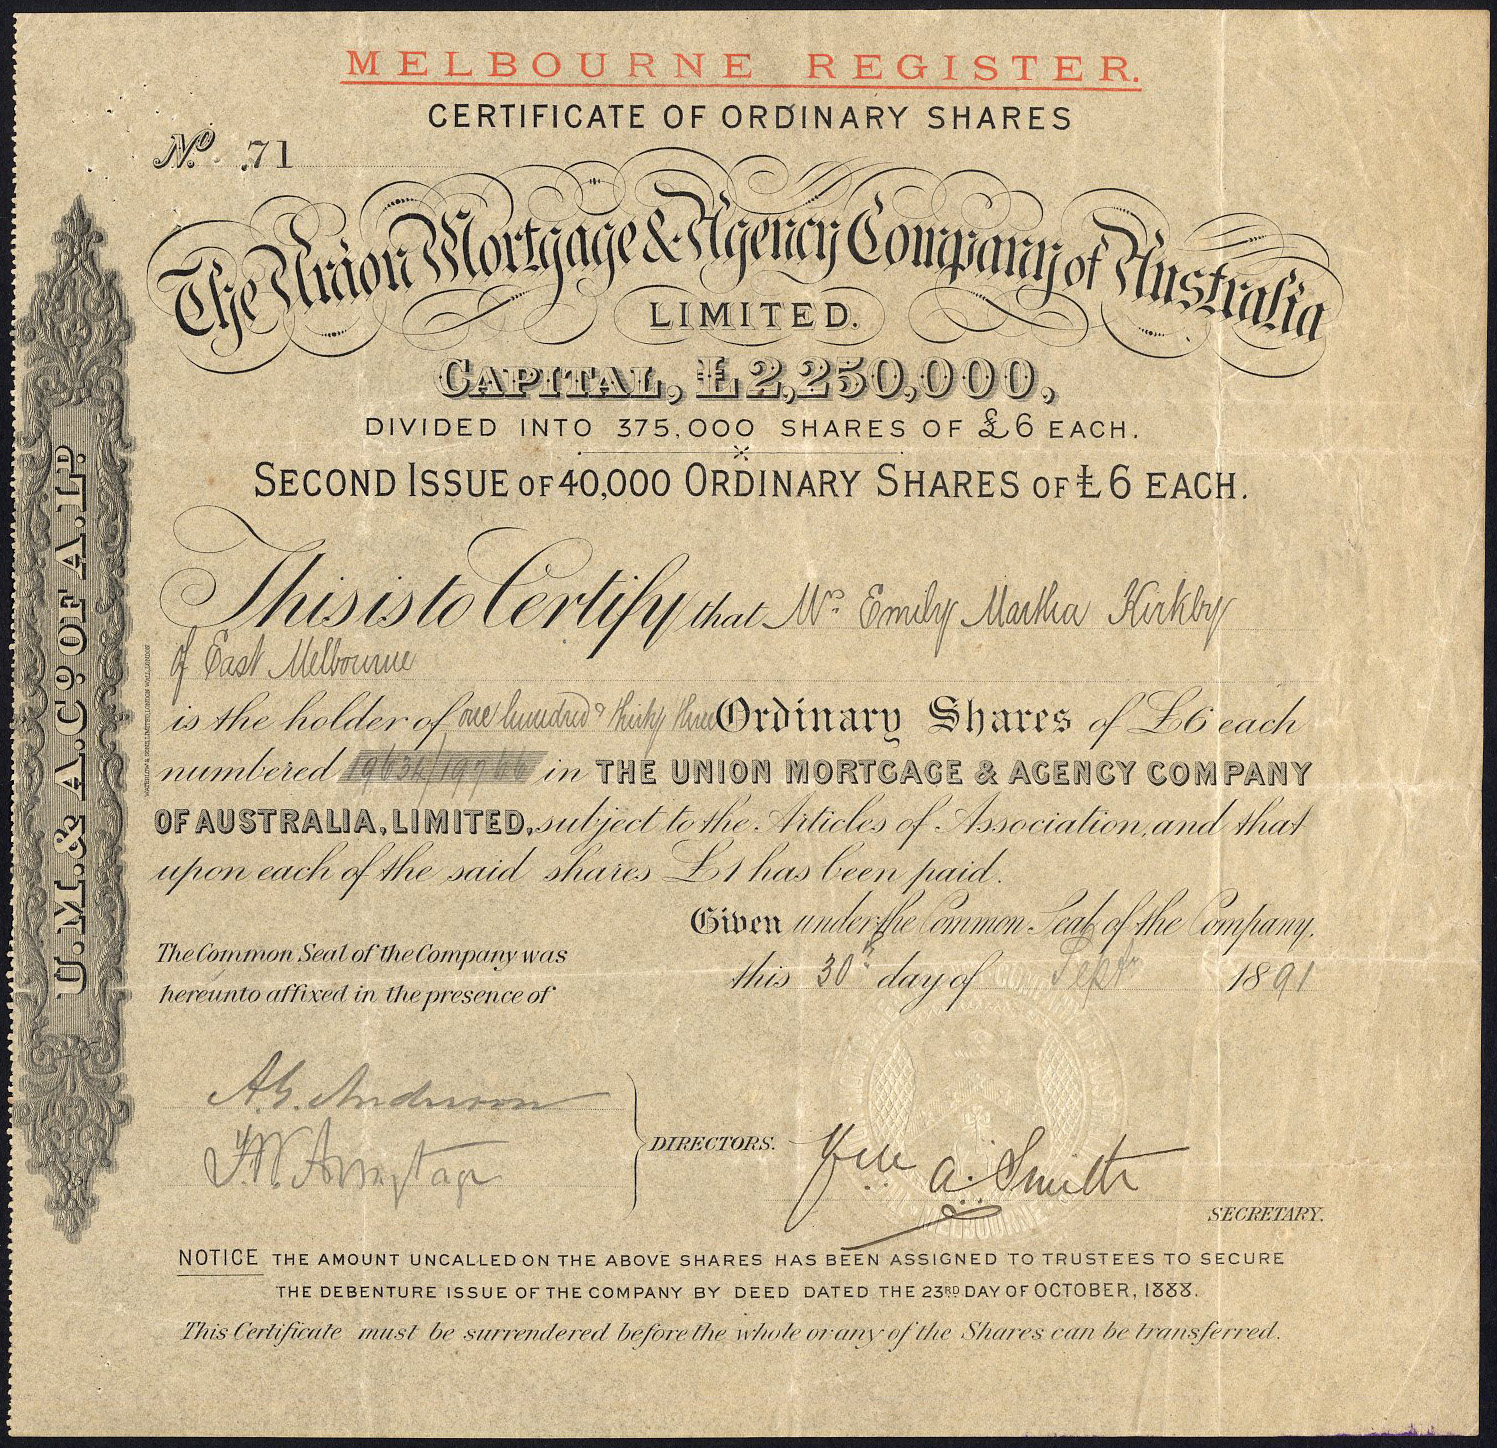 MELBOURNE REGISTER.
CERTIFICATE OF ORDINARY SHARES
No. 71
The Union Mortgage & Agency Company of Australia
LIMITED.
CAPITAL, £2,250,000,
DIVIDED INTO 375,000 SHARES OF £6 EACH.
SECOND ISSUE OF 40,000 ORDINARY SHARES OF £6 EACH.
This is to Certify that Mrs Emily Martha Kirkby
of East Melbourne
is the holder of one hundred & thirty three Ordinary Shares of £6 each
numbered 19634/19766 in THE UNION MORTGAGE & AGENCY COMPANY
OF AUSTRALIA, LIMITED, subject to the Articles of Association, and that
upon each of the said shares £1 has been paid.
Given under the Common Seal of the Company,
this 30th day of Septr 1891
The Common Seal of the Company was
hereunto affixed in the presence of
A.G. Anderson
F.W. Armytage
DIRECTORS.
Wm A. Smith
SECRETARY.
NOTICE THE AMOUNT UNCALLED ON THE ABOVE SHARES HAS BEEN ASSIGNED TO TRUSTEES TO SECURE
THE DEBENTURE ISSUE OF THE COMPANY BY DEED DATED THE 23RD DAY OF OCTOBER, 1888.
This Certificate must be surrendered before the whole or any of the Shares can be transferred.
U.M. & A. Co. OF A. LD.